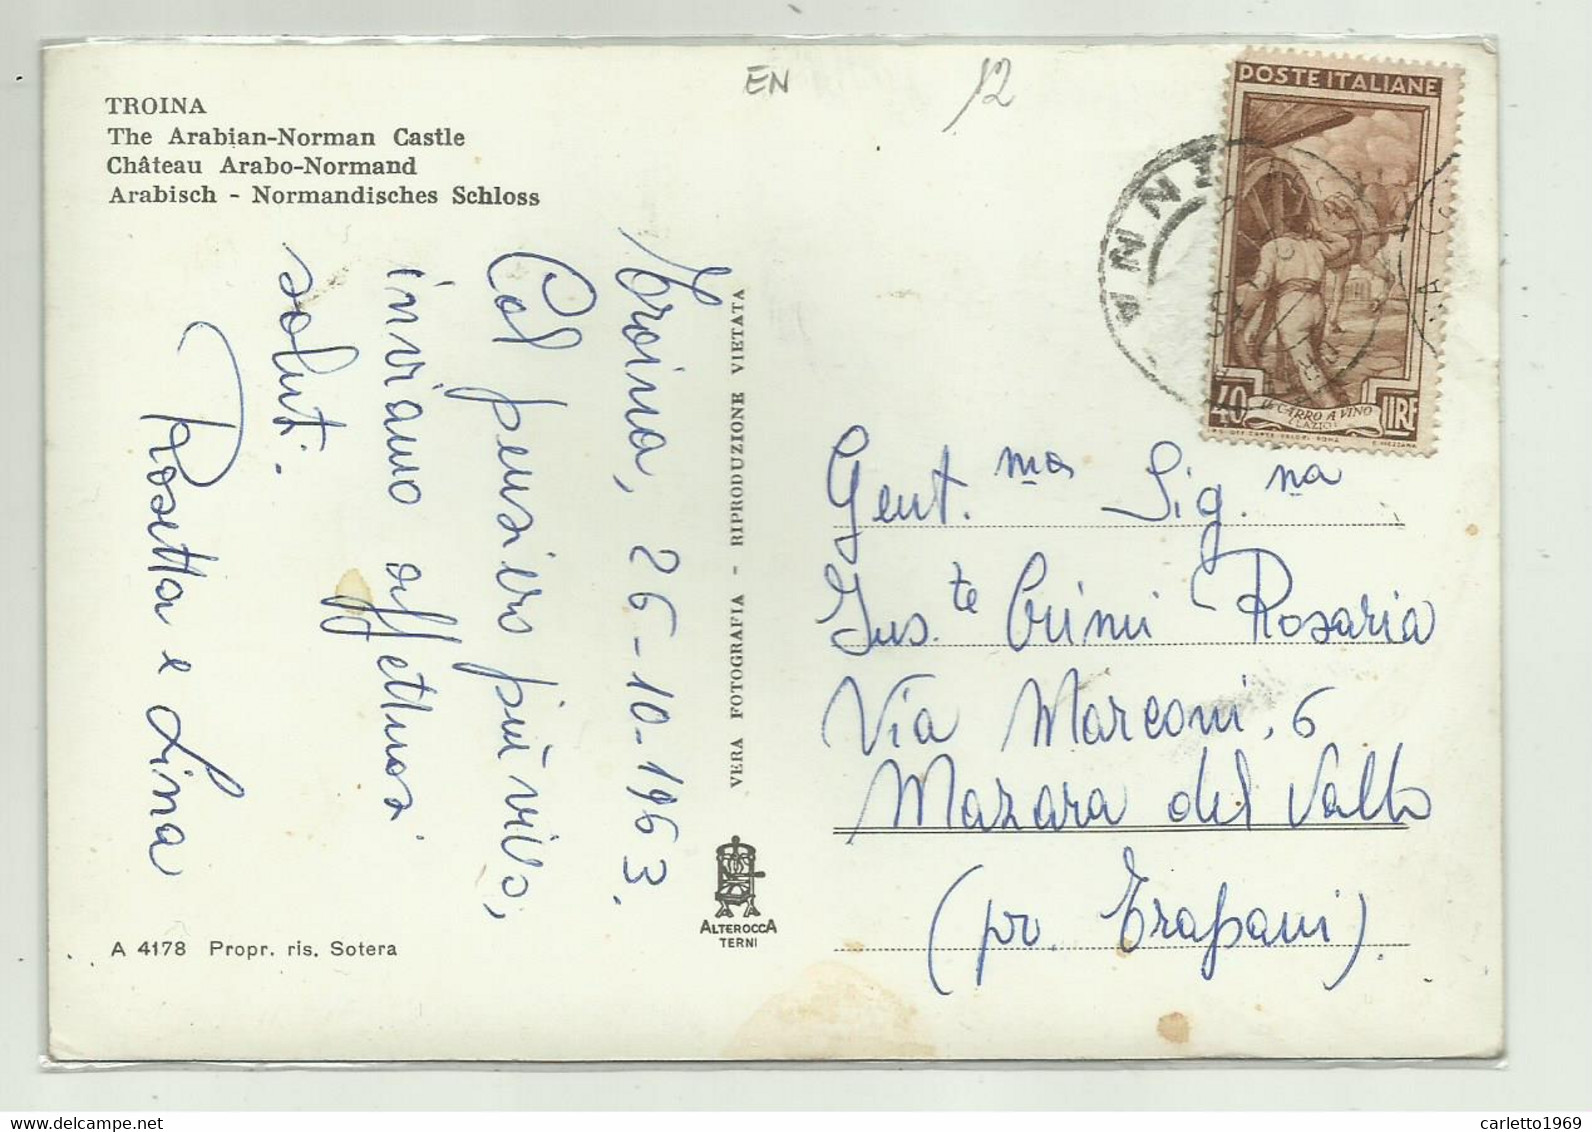 EN
12
TROINA
The Arabian-Norman Castle
Château Arabo-Normand
Arabisch - Normandisches Schloss
Troina, 26-10-1963.
Col pensiero più vivo,
inviamo affettuosi
saluti.
Rosetta e Lina
VERA FOTOGRAFIA - RIPRODUZIONE VIETATA
ALTEROCCA
TERNI
A 4178 Propr. ris. Sotera
POSTE ITALIANE
40 LIRE
IL CARRO A VINO
(LAZIO)
Gent.ma Sig.na
Ins.te Crimi Rosaria
Via Marconi, 6
Mazara del Vallo
(pr. Trapani).
carletto1969